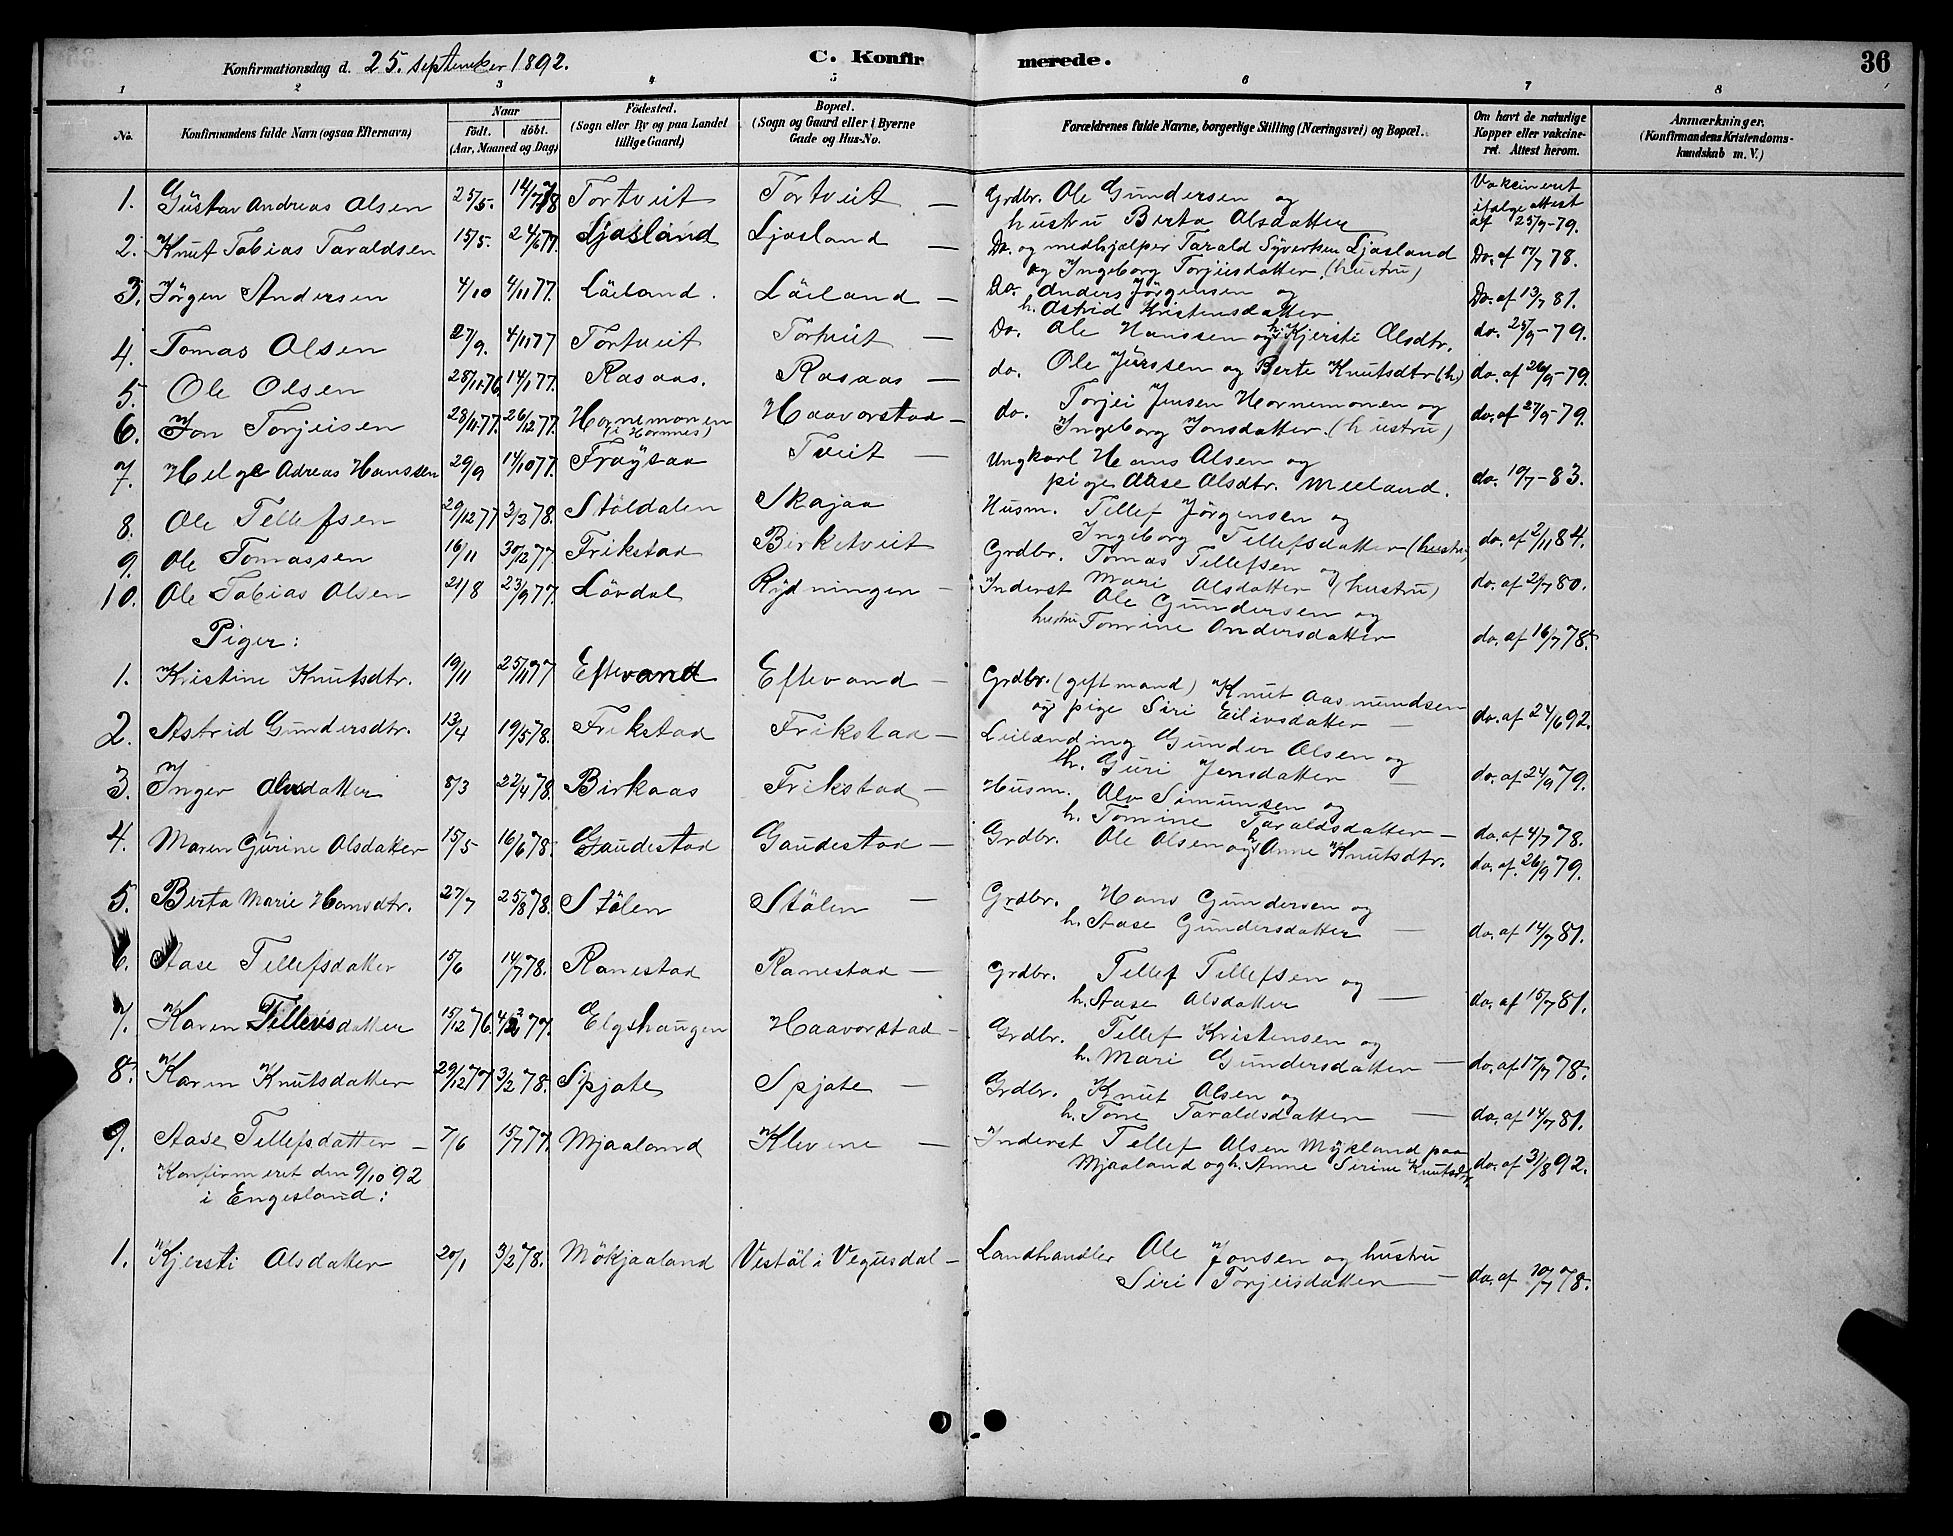 Konfirmationsdag d. 25. september 1892. C. Konfirmerede. 36
1 2 3 4 5 6 7 8
No. Konfirmandens fulde Navn (ogsaa Efternavn) Naar födt. döbt. (Aar, Maaned og Dag) Födested. (Sogn eller By og paa Landet tillige Gaard) Bopæl. (Sogn og Gaard eller i Byerne Gade og Hus-No. Forældrenes fulde Navne, borgerlige Stilling (Næringsvei) og Bopæl. Om havt de naturlige Kopper eller vakcineret. Attest herom. Anmærkninger. (Konfirmandens Kristendomskundskab m. V.)
1. Gustav Andreas Olsen 25/5. 14/7 78 Tortveit Tortveit — Grdbr. Ole Gundersen og hustru Berta Olsdatter Vakcineret ifølge attest af 25/9-79.
2. Knut Tobias Taraldsen 15/5. 24/6 77 Ljosland Ljosland — Do. og medhjælper Tarald Syvertsen Ljosland og Ingeborg Torjusdatter (hustru) Do. af 17/7 78.
3. Jörgen Andersen 4/10 4/11 77. Löiland. Löiland — Do. Anders Jörgensen og h. Astrid Kristensdatter Do. af 13/7 81.
4. Tomas Olsen 27/9. 4/11 77 Tortveit Tortveit — Do. Ole Hanssen og h. Kjersti Olsdtr. do. 25/9-79.
5. Ole Olsen 28/11 76 14/1 77. Rosaas. Rosaas — do. Ole Jörssen og Berte Knutsdtr (h) do. af 26/9-79.
6. Jon Torjeisen 28/11 77. 26/12 77. Hornemonen (i Hornnes) Haavorstad — do. Torjei Jensen Hornemonen og Ingeborg Jonsdatter. (hustru) do. af 27/9-79.
7. Helge Adreas Hanssen 29/9 14/10 77. Fröysaa Tveit — Ungkarl Hans Olsen og pige Aase Olsdtr. Meeland. do. 19/7-83.
8. Ole Tellefsen 29/12 77 3/3 78. Stöldalen Skajaa Husm. Tellef Jörgensen og Ingeborg Tellefsdatter (hustru do. af 2/11 84.
9. Ole Tomassen 16/11 30/12 77. Frikstad Birketveit Grdbr. Tomas Tellefsen og Mari Olsdatter (hustru) do. af 2/7 80.
10. Ole Tobias Olsen 21/8 23/9 77. Lövdal Rydningen — Inderst Ole Gundersen og hustru Tomine Andersdatter do. af 16/7 78.
Piger:
1. Kristine Knutsdtr. 19/11 25/11 77 Eftevand Eftevand — Grdbr. (gift mand) Knut Aasmundsen og pige Siri Eilivsdatter — do. af 24/6 92.
2. Astrid Gundersdtr. 13/4 19/5 78. Frikstad Frikstad — Leilending Gunder Olsen og h. Guri Jensdatter — do. af 24/9 79.
3. Inger Alvsdatter 8/3 22/4 78. Birkaas Frikstad — Husm. Alv Simunsen og h. Tomine Taraldsdatter — do. af 4/7 78.
4. Maren Gurine Olsdatter 15/5 16/6 78. Gaudestad Gaudestad — Grdbr. Ole Olsen og h. Anne Knutsdtr. do. af 26/9 79.
5. Berta Marie Hansdtr. 27/7 25/8 78. Stölen Stölen — Grdbr. Hans Gundersen og h. Aase Gundersdatter — do. af 14/7 81.
6. Aase Tellefsdatter 15/6 14/7 78. Ronestad Ronestad — Grdbr. Tellef Tellefsen og h. Aase Olsdatter — do. af 15/7 81.
7. Karen Tellevsdatter 15/12 76 4/2 77. Elgshaugen Haavorstad — Grdbr. Tellef Kristensen og h. Mari Gundersdatter — do. af 17/7 78.
8. Karen Knutsdatter 29/12 77 3/2 78. Spjote Spjote — Grdbr. Knut Olsen og h. Tone Taraldsdatter — do. af 14/7 81.
9. Aase Tellefsdatter — 7/6 15/7 77. Mjaaland Klevene — Inderst Tellef Olsen Mykland paa Mjaaland og h. Anne Sirine Knutsdtr. do. af 31/8 92.
Konfirmeret den 9/10 92
i Engesland:
1. Kjersti Olsdatter 20/1 3/2 78. Mökjaaland Vestöl i Vegusdal — Landhandler Ole Jonsen og hustru Siri Torjeisdatter — do. af 10/7 78.